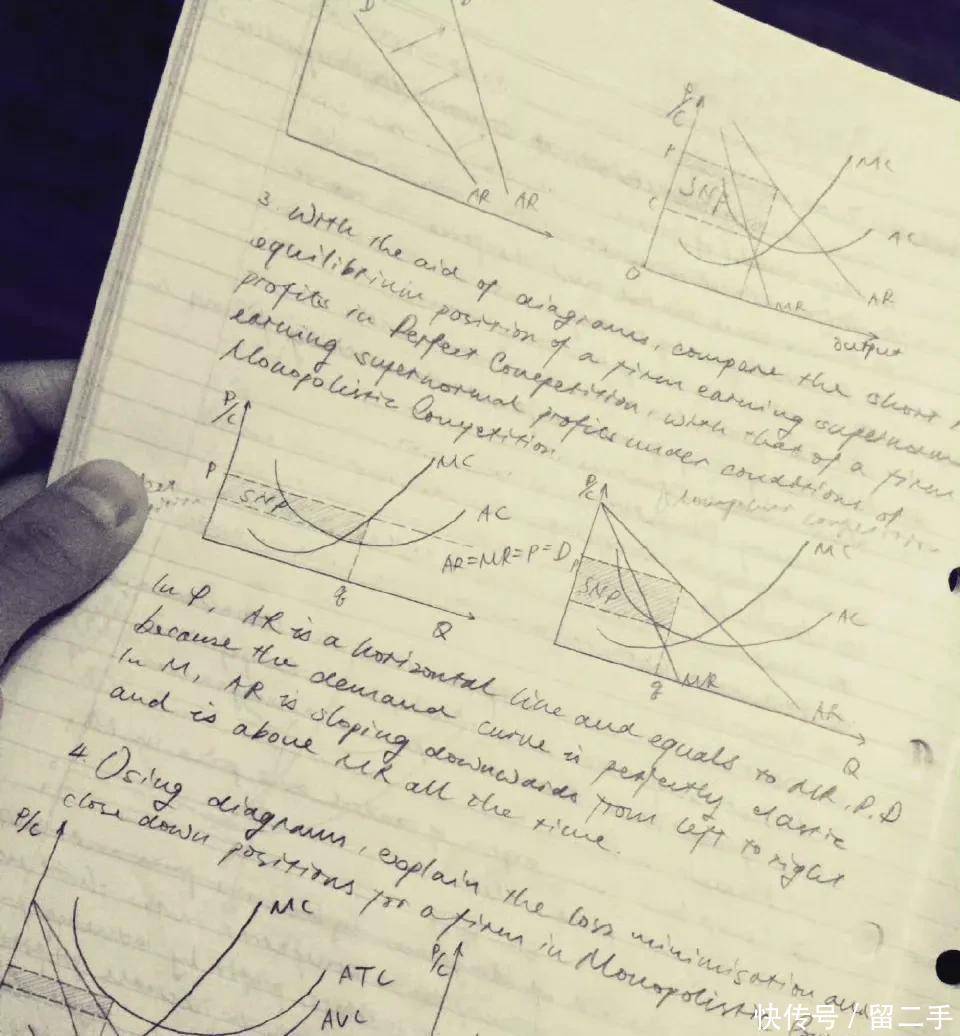 D
D
AR
AR
P/C
P
SNP
C
O
MC
AC
MR
AR
output
3. With the aid of diagrams, compare the short
equilibrium position of a firm earning supernorm
profits in Perfect Competition, with that of a firm
earning supernormal profits under conditions of
Monopolistic Competition.
P/C
P
SNP
MC
AC
AR=MR=P=D
q
Q
P/C
P
SNP
MC
AC
MR
AR
q
Q
In P, AR is a horizontal line and equals to MR, P, D
because the demand curve is perfectly elastic
In M, AR is sloping downwards from left to right
and is above MR all the time.
4. Using diagrams, explain the loss minimisation and
close down positions for a firm in Monopolistic
P/C
MC
ATC
AVC
P/C
快传号/留二手